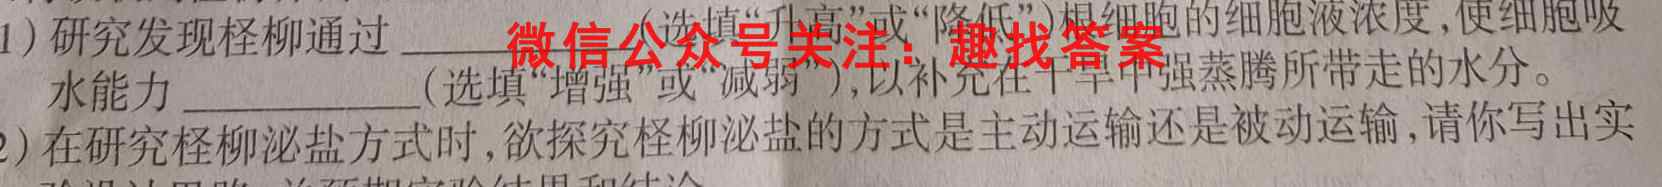 1)研究发现柽柳通过________(选填“升高”或“降低”)根细胞的细胞液浓度,使细胞吸
微信公众号关注：趣找答案
水能力________(选填“增强”或“减弱”),以补充在干旱中强蒸腾所带走的水分。
2)在研究柽柳泌盐方式时,欲探究柽柳泌盐的方式是主动运输还是被动运输,请你写出实